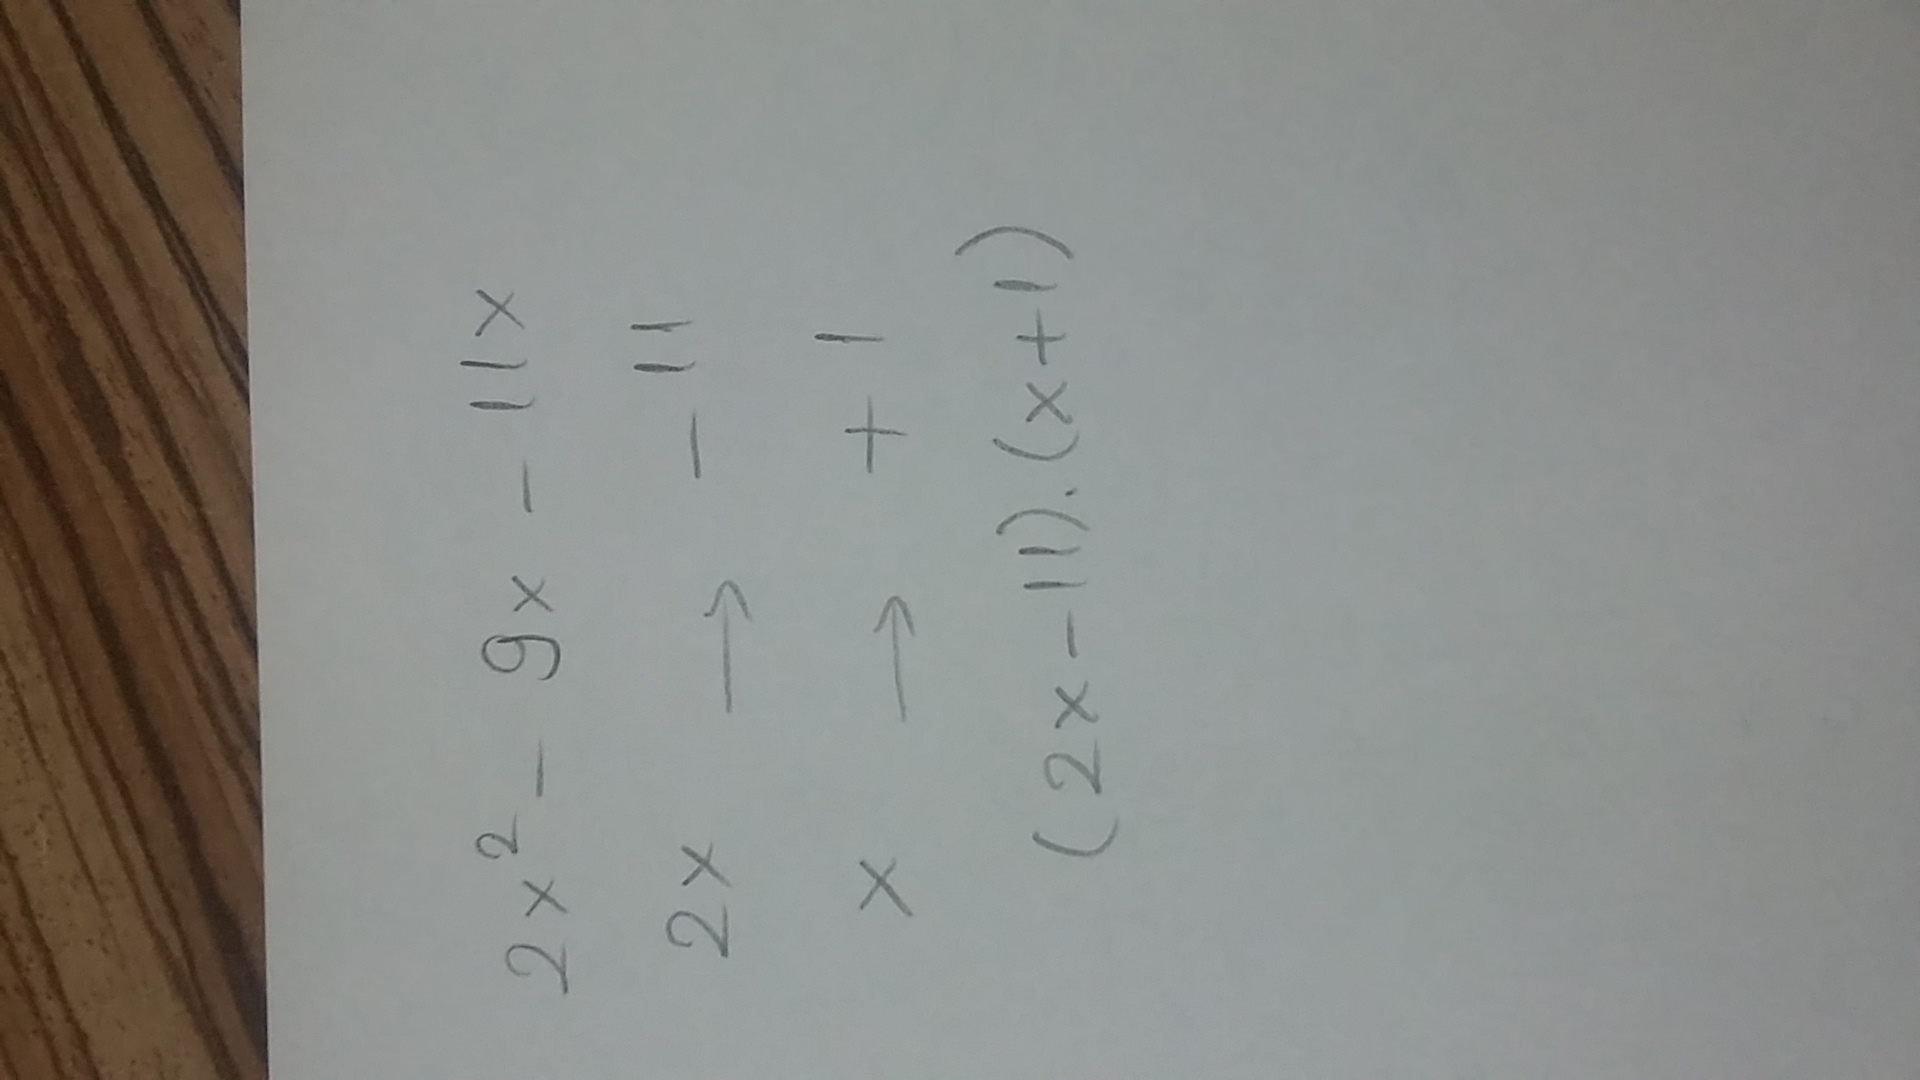 2x² - 9x - 11x
2x → - 11
x → + 1
(2x - 11).(x+1)